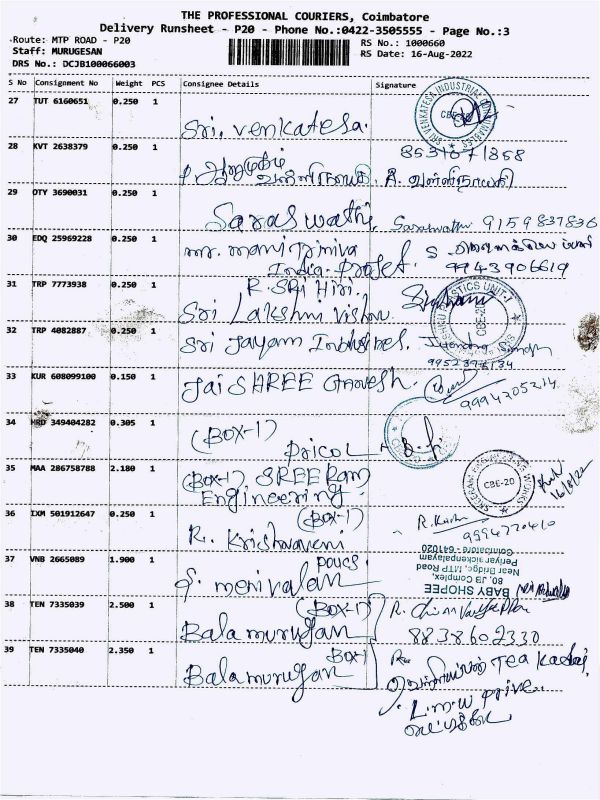 THE PROFESSIONAL COURIERS, Coimbatore
Delivery Runsheet - P20 - Phone No.:0422-3505555 - Page No.:3
Route: MTP ROAD - P20 RS No.: 1000660
Staff: MURUGESAN RS Date: 16-Aug-2022
DRS No.: DCJB100066003
S No Consignment No Weight PCS Consignee Details Signature
27 TUT 6160651 0.250 1
Sri. venkatesa.
28 KVT 2638379 0.250 1 8531071858
வள்ளிநாயகி. A. வள்ளிநாயகி
29 OTY 3690031 0.250 1
Saraswathi, Saraswathi 9159837836
30 EDQ 25969228 0.250 1 mr. S.
India. 9943906619
31 TRP 7773938 0.250 1 R. SRI Hiri.
Sri Lakshmi Vishnu.
32 TRP 4082887 0.250 1
Sri Jayam Industries. Singh
33 KUR 608099100 0.150 1
Jai SHREE Ganesh. 9994205214
34 HRD 349404282 0.305 1 (BOX-1)
Pricol
35 MAA 286758788 2.180 1 (BOX-1) SREE Ram
Engineering CBE-20 16/8/22
36 IXM 501912647 0.250 1 (BOX-1)
R. Krishnaveni 9994720410
37 VNB 2665089 1.900 1
S. manivalan
BABY SHOPEE
80, JB Complex,
Near Bridge, MTP Road
Periyanaickenpalayam
Coimbatore - 641020
38 TEN 7335039 2.500 1 (BOX-1)
Balamurugan 8838602330
39 TEN 7335040 2.350 1 BOX1
Balamurugan Tea
L.m.w